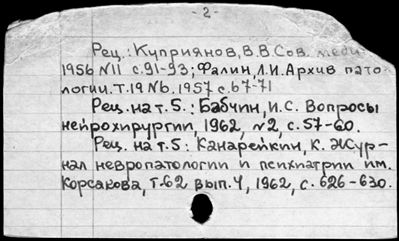 - 2 -
Рец.: Куприянов, В.В Сов. меди
1956 N11 с.91-93; Фалин, Л.И. Архив пато-
логии. Т.19 N6. 1957 с.67-71
Рец. на т. 5.: Бабчин, И.С. Вопросы
нейрохирургии, 1962, N2, с. 57-60.
Рец. на т. 5: Канарейкин, К. Жур-
нал невропатологии и психиатрии им.
Корсакова, Т.62 вып. 4, 1962, с. 626-630.